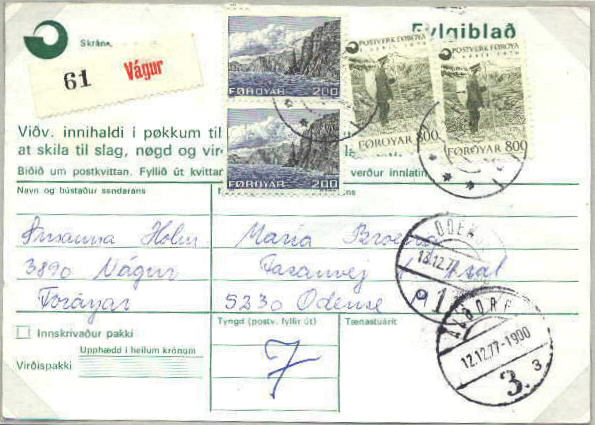 Skrás.
Fylgiblað
61 Vágur
FØROYAR 200
FØROYAR 200
POSTVERK FØROYA
FØROYAR 800
POSTVERK FØROYA
FØROYAR 800
Viðv. innihaldi í pøkkum til
at skila til slag, nøgd og
Biðið um postkvittan. Fyllið út
verður
Navn og bústaður sendarans
Susanna Holm
3890 Vágur
Føroyar
Maria
Fasanvej
5230 Odense
ODEN
13.12.77
1
12.12.77-1900
3. 3
Innskrivaður pakki
Virðispakki
Upphædd í heilum krónum
Tyngd (postv. fyllir út)
7
Tænastuárit